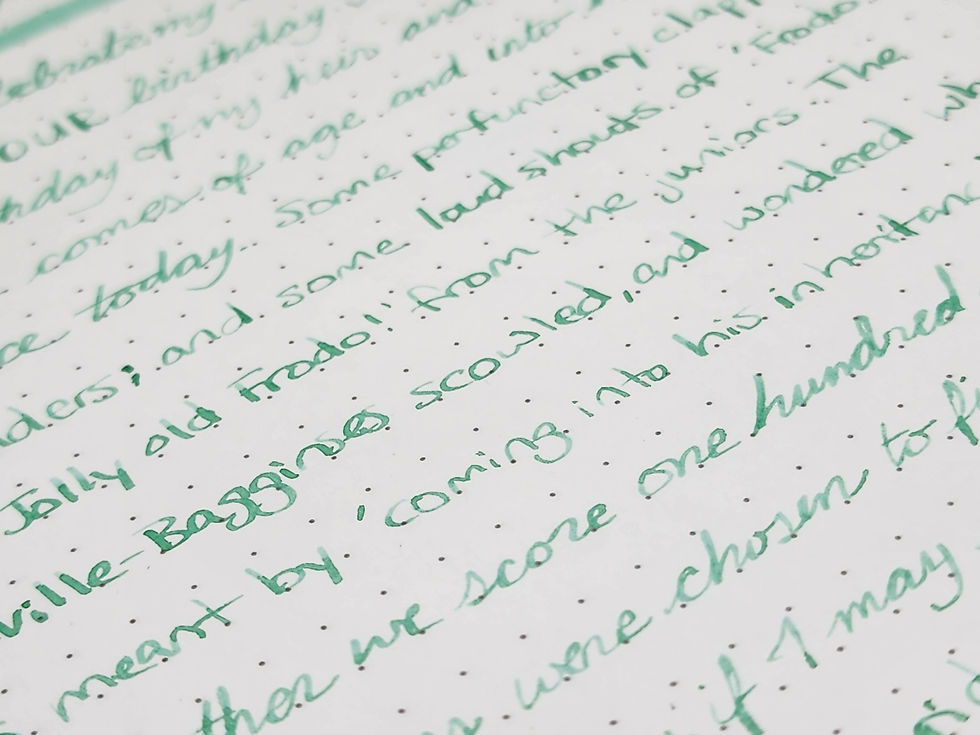 celebrating my
OUR birthday
birthday of my heir and
comes of age and into
today. Some perfunctory clapp
elders; and some loud shouts of 'Frodo
Jolly old Frodo!' from the juniors. The
ville-Bagginses scowled, and wondered wh
meant by 'coming into his inheritanc
ther we score one hundred
were chosen to fi
if I may